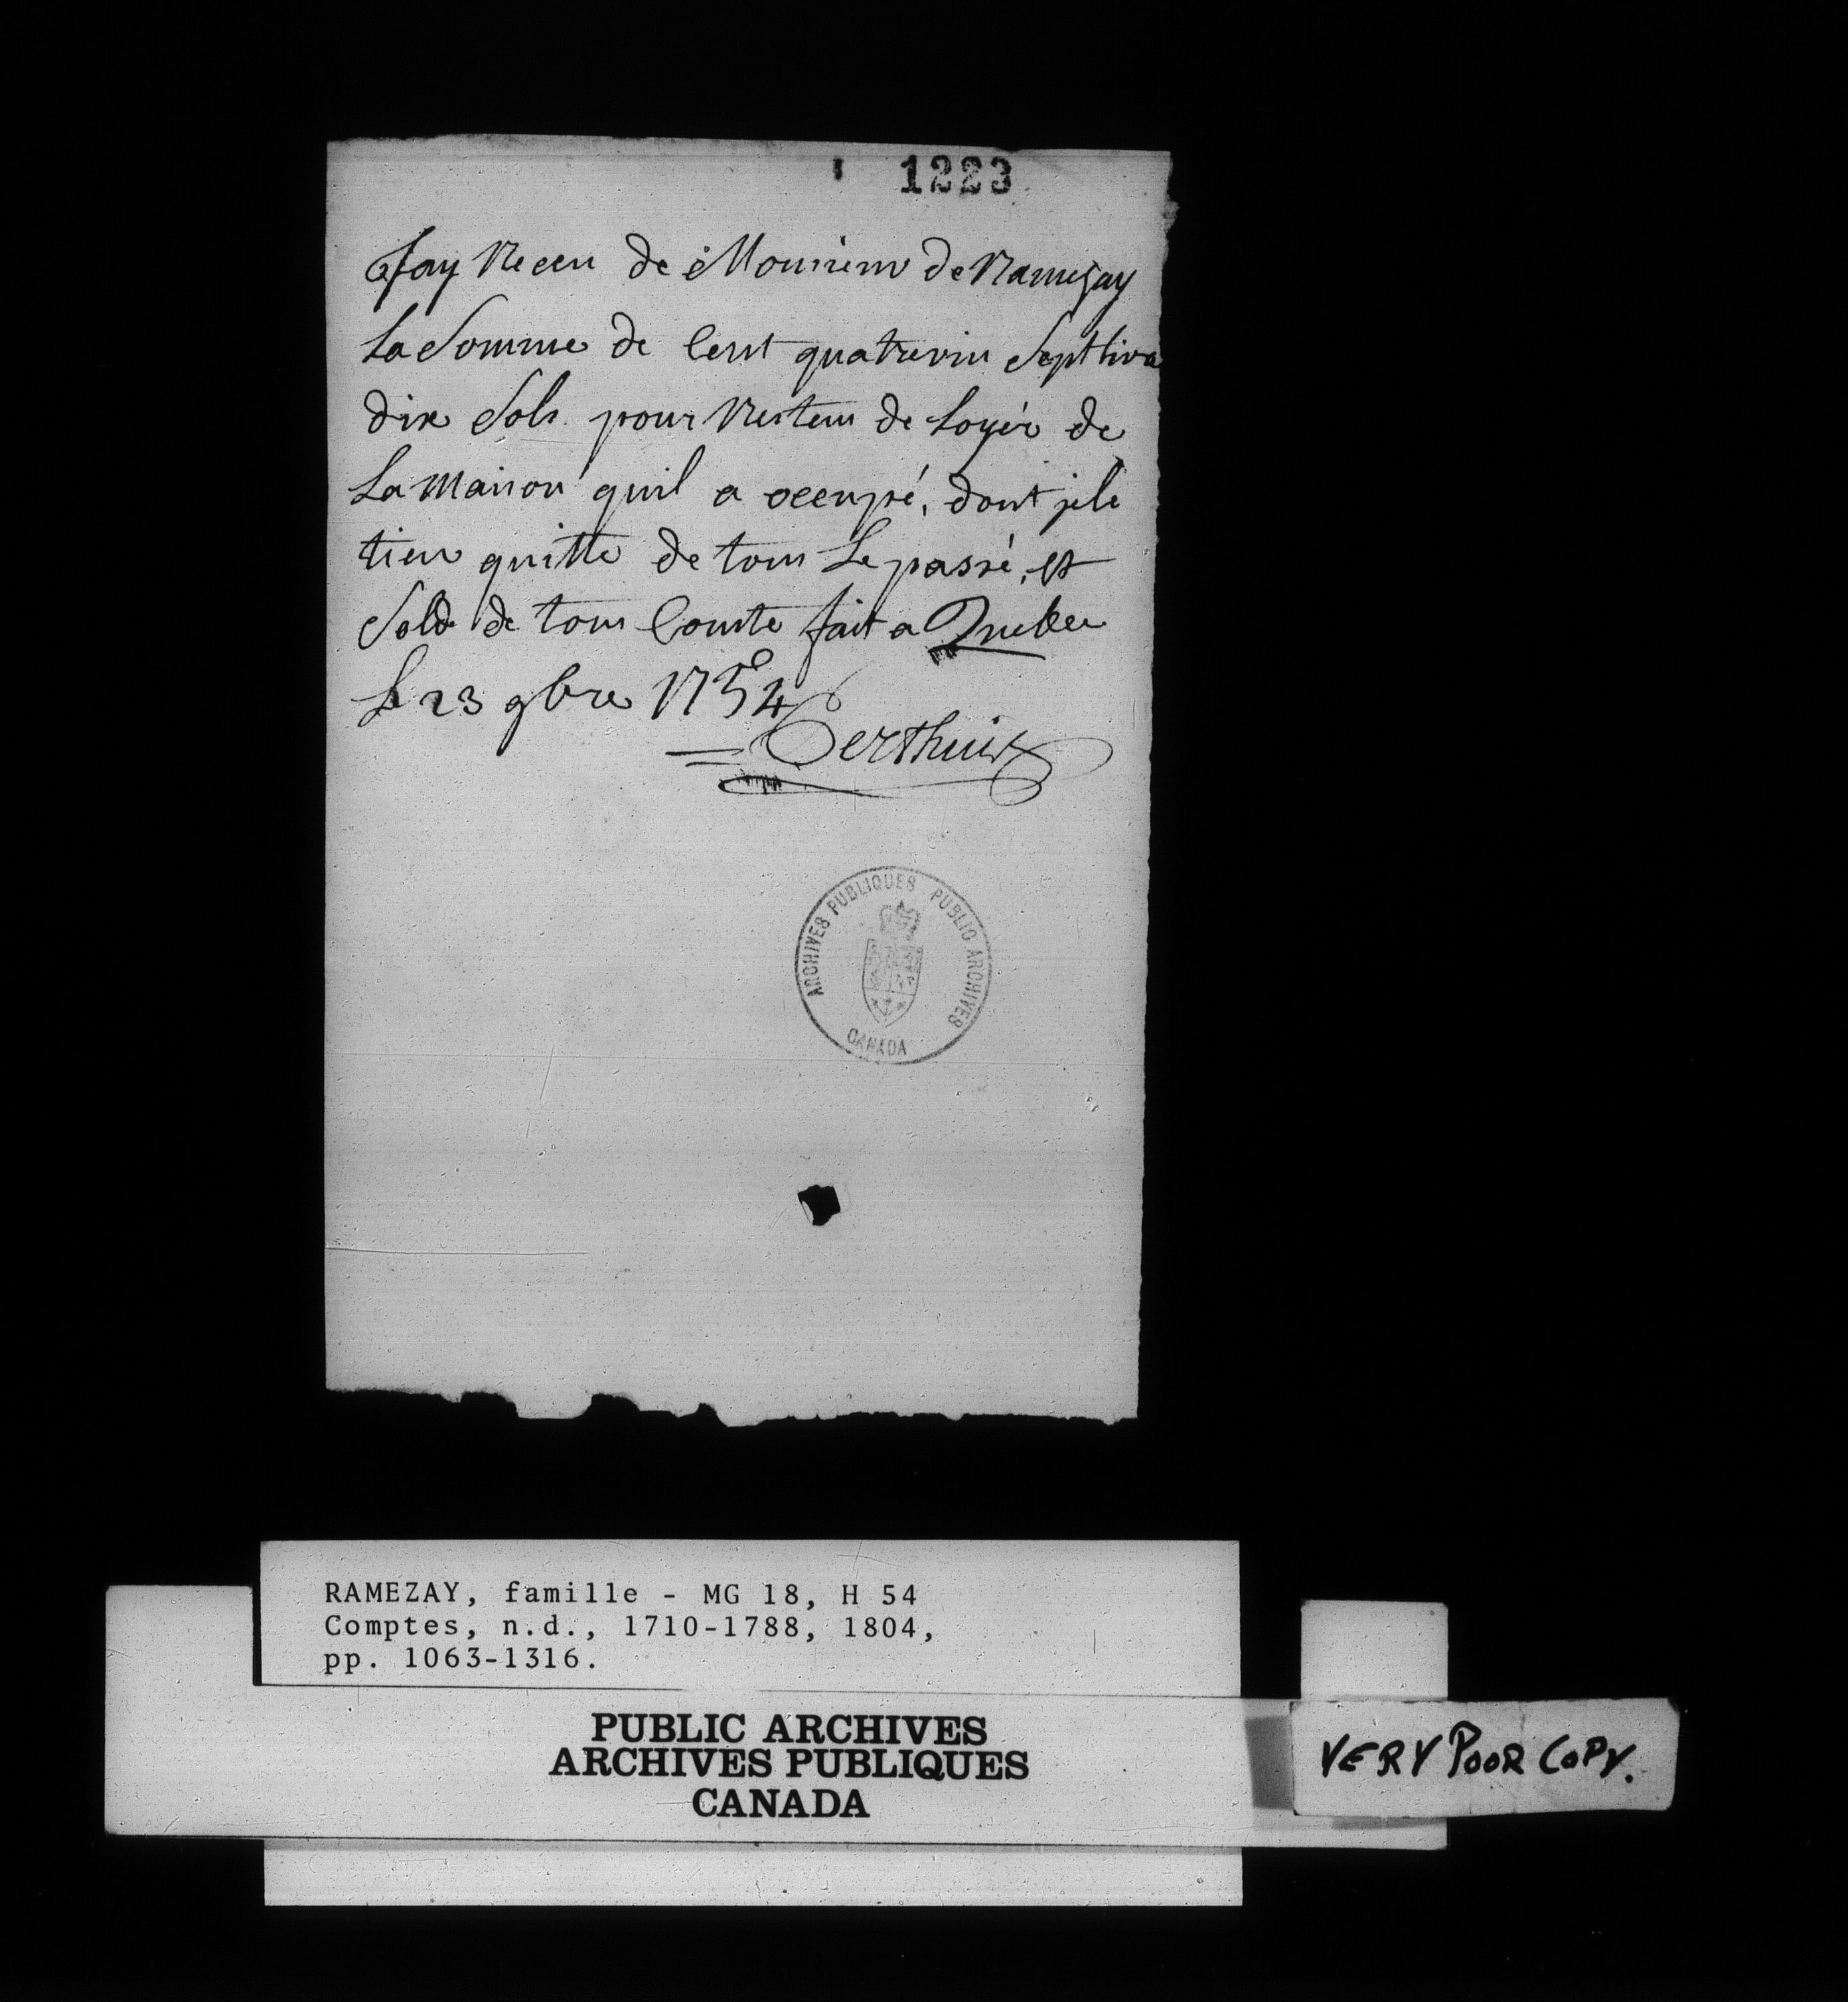 1223
Jay Receu de Monsieur de Ramezay
La Somme de Cent quatrevin Sept livre
dix Sols pour Restem de Loyér de
La Maison quil a occupé, dont jele
tien quitte de tous Le passé, et
Solde de tous Comte fait a Quebec
Le 23 9bre 1754
Perthuis
ARCHIVES PUBLIQUES PUBLIC ARCHIVES
CANADA
RAMEZAY, famille - MG 18, H 54
Comptes, n.d., 1710-1788, 1804,
pp. 1063-1316.
PUBLIC ARCHIVES
ARCHIVES PUBLIQUES
CANADA
VERY POOR COPY.